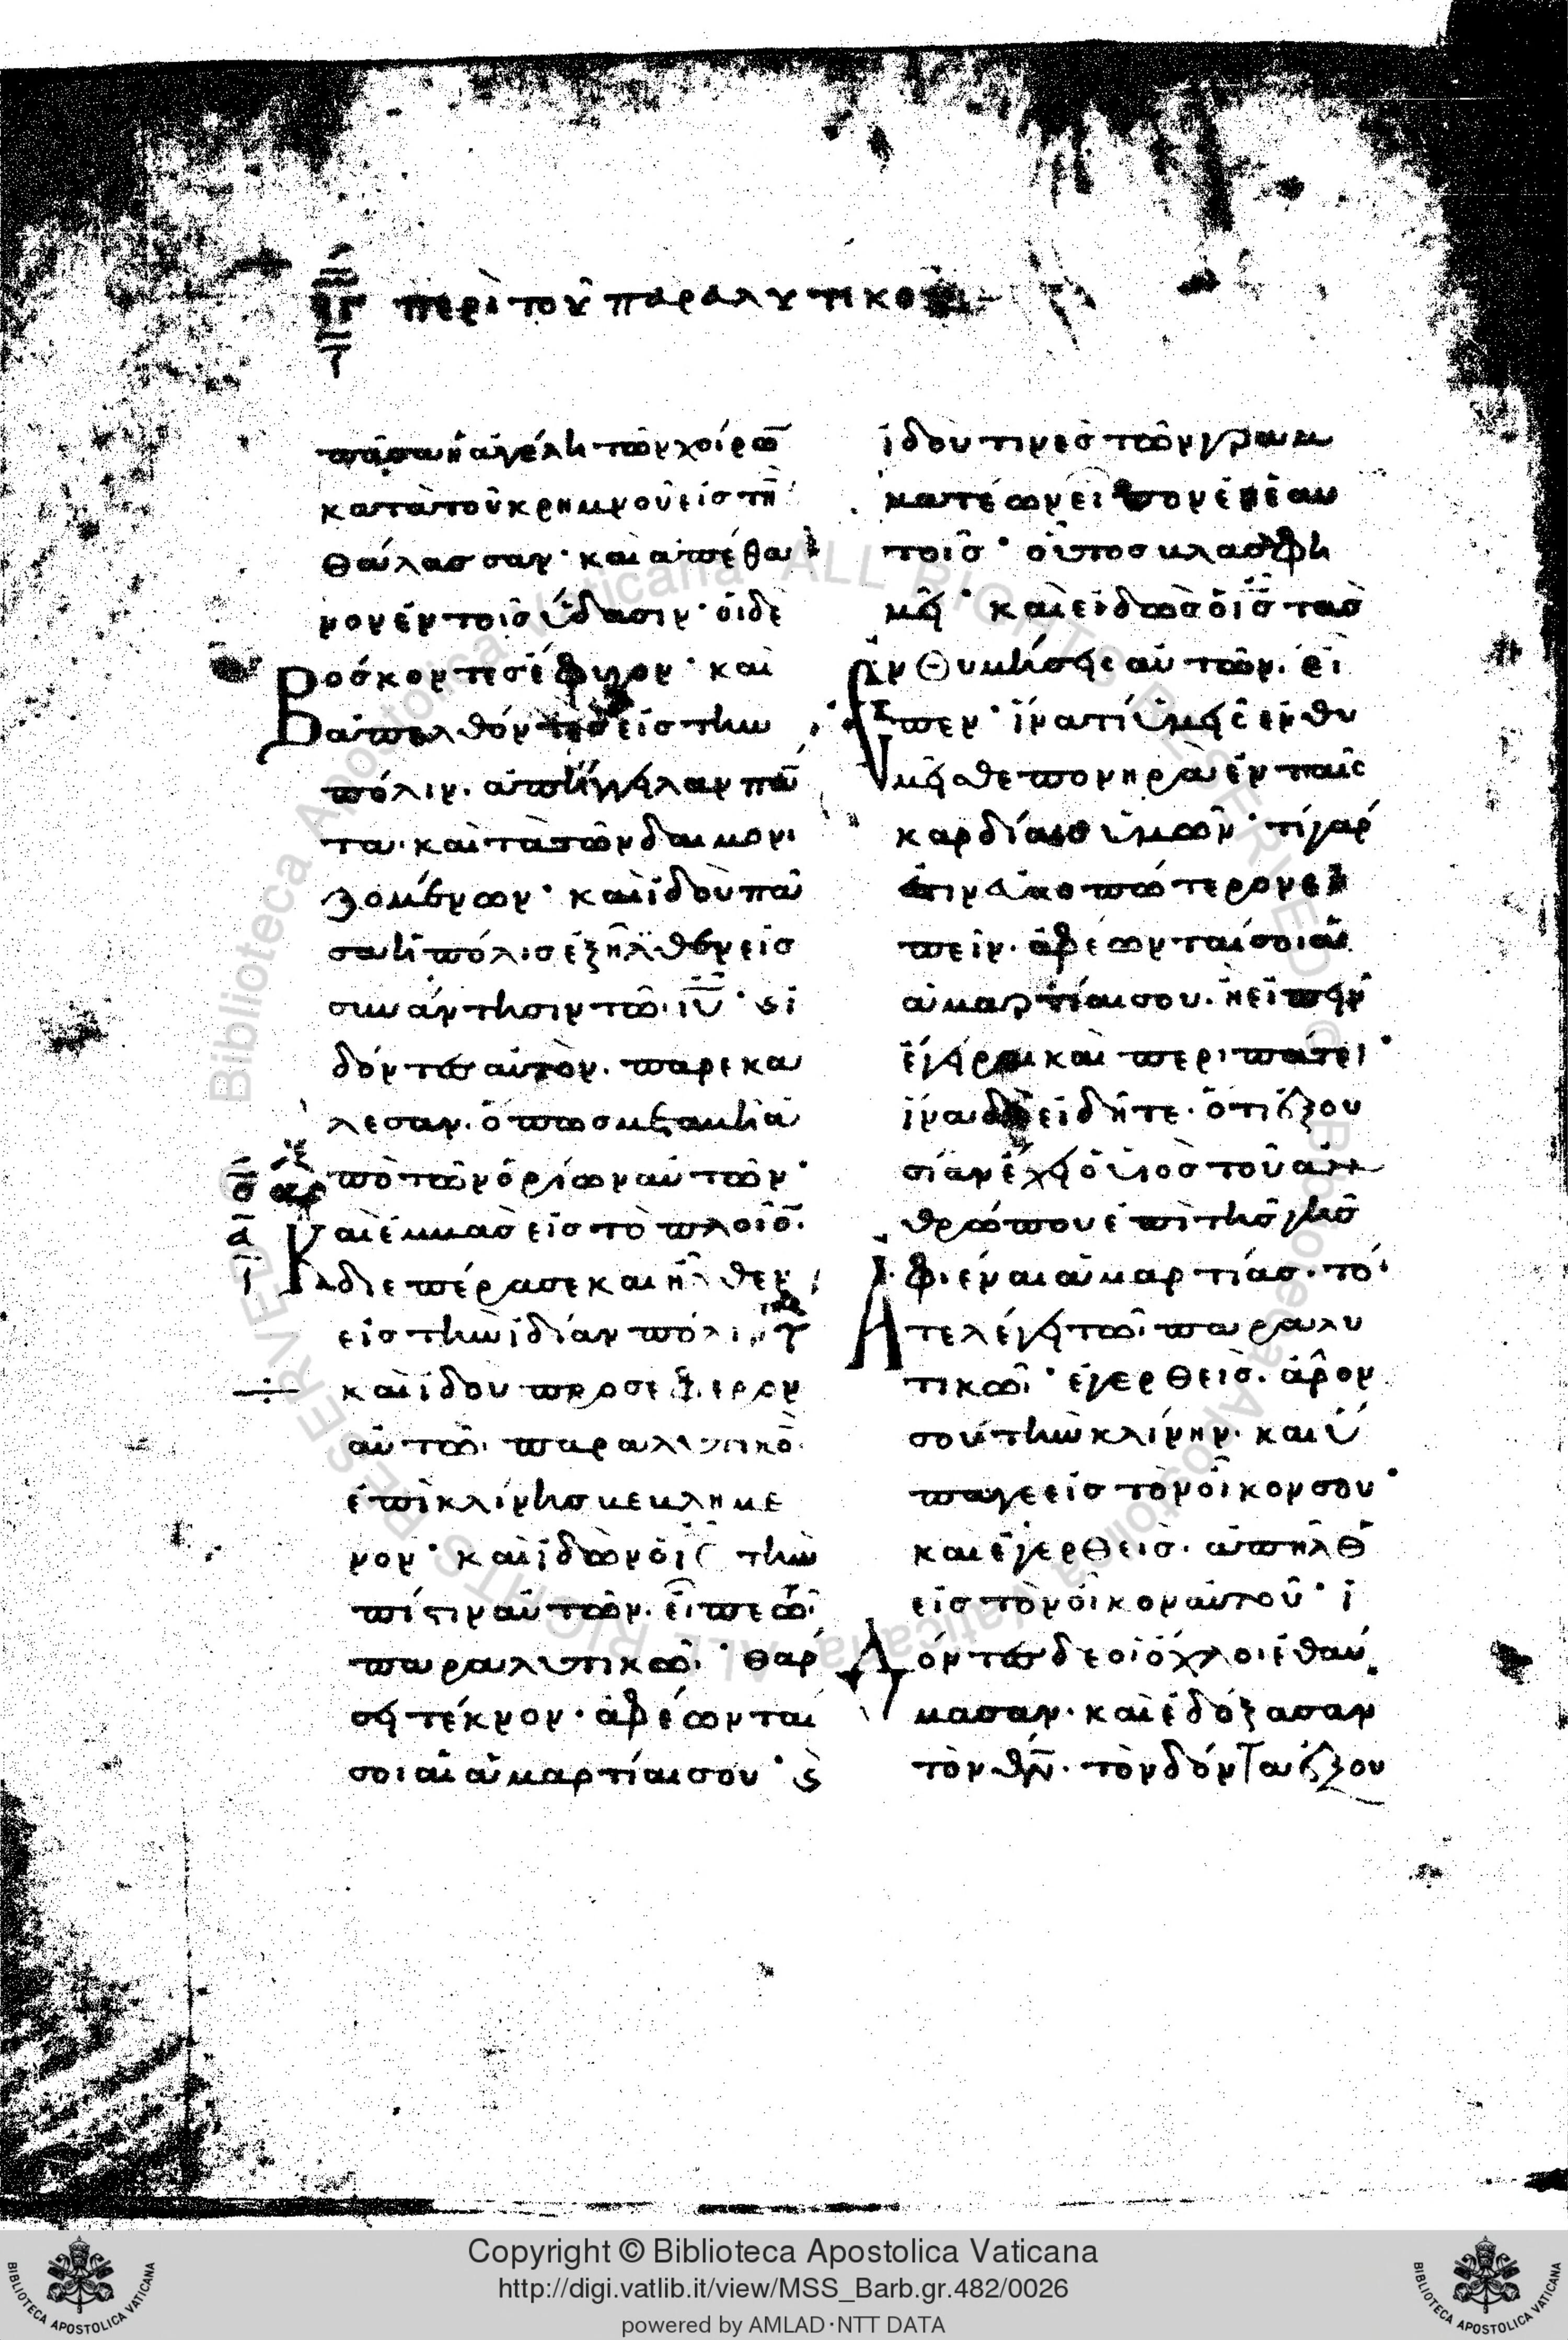 ιγ περὶ τοῦ παραλυτικοῦ
ι
πᾶσα ἡ ἀγέλη τῶν χοίρω̄
κατὰ τοῦ κρημνοῦ εἰς τὴ̄
θάλασσαν· καὶ ἀπέθα
νον ἐν τοῖς ὕδασιν· οἱ δὲ
βόσκοντες ἔφυγον· καὶ
ἀπελθόντες εἰς τὴν
πόλιν. ἀπήγγειλαν πά̄
τα· καὶ τὰ τῶν δαιμονι
ζομένων· καὶ ἰδοὺ πᾶ
σα ἡ πόλις ἐξῆλθεν εἰς
συνάντησιν τῶ ιῡ· κ ἰ
δόντες αὐτὸν. παρεκα
λεσαν. ὅπως μεταβῆ ἀ
πὸ τῶν ὁρίων αὐτῶν·
Καὶ ἐμβὰς εἰς τὸ πλοῖο̄.
διεπέρασε καὶ ἦλθεν
εἰς τὴν ἰδίαν πόλιν
καὶ ἰδου προσέφερον
αὐτῶ. παραλυτικὸ̄.
ἐπὶ κλίνης βεβλημέ
νον· καὶ ἰδὼν ὁ ις τὴν
πίστιν αὐτῶν. εἶπε τῶ
παραλυτικῶ· θάρ
σει τέκνον. ἀφέωνται
σοι αἱ ἁμαρτίαι σου· κ
ἰδοὺ τινες τῶν γραμ
ματέων εἶπον ἐν ἑαυ
τοῖς· οὗτος βλασφη
μεῖ· καὶ εἰδὼς ὁ ις τὰς
ἐνθυμήσεις αὐτῶν. εἶ
πεν· ἱνατί ὑμεῖς ἐνθυ
μεῖσθε πονηρὰ ἐν ταῖς
καρδίαις ὑμῶν· τί γάρ
ἐστιν εὐκοπώτερον εἰ
πεῖν. ἀφέωνταί σοι αἱ
ἁμαρτίαι σου. ἢ εἰπεῖν
ἔγειραι καὶ περιπάτει·
ἵνα δὲ εἰδῆτε. ὅτι ἐξου
σίαν ἔχει ὁ υἱὸς τοῦ ἀν
θρώπου ἐπὶ τῆς γῆς
ἀφιέναι ἁμαρτίας. τό
τε λέγει τῶ παραλυ
τικῶ· ἐγερθεὶς. ἆρον
σοῦ τὴν κλίνην. καὶ ὕ
παγε εἰς τὸν οἶκον σου·
καὶ ἐγερθεὶς. ἀπῆλθε̄
εἰς τὸν οἶκον αὐτοῦ· ἰ
δόντες δὲ οἱ ὄχλοι ἐθαύ
μασαν. καὶ ἐδόξασαν
τὸν θν̄. τὸν δόντα ἐξου
Copyright © Biblioteca Apostolica Vaticana
http://digi.vatlib.it/view/MSS_Barb.gr.482/0026
powered by AMLAD·NTT DATA
BIBLIOTECA APOSTOLICA VATICANA
BIBLIOTECA APOSTOLICA VATICANA